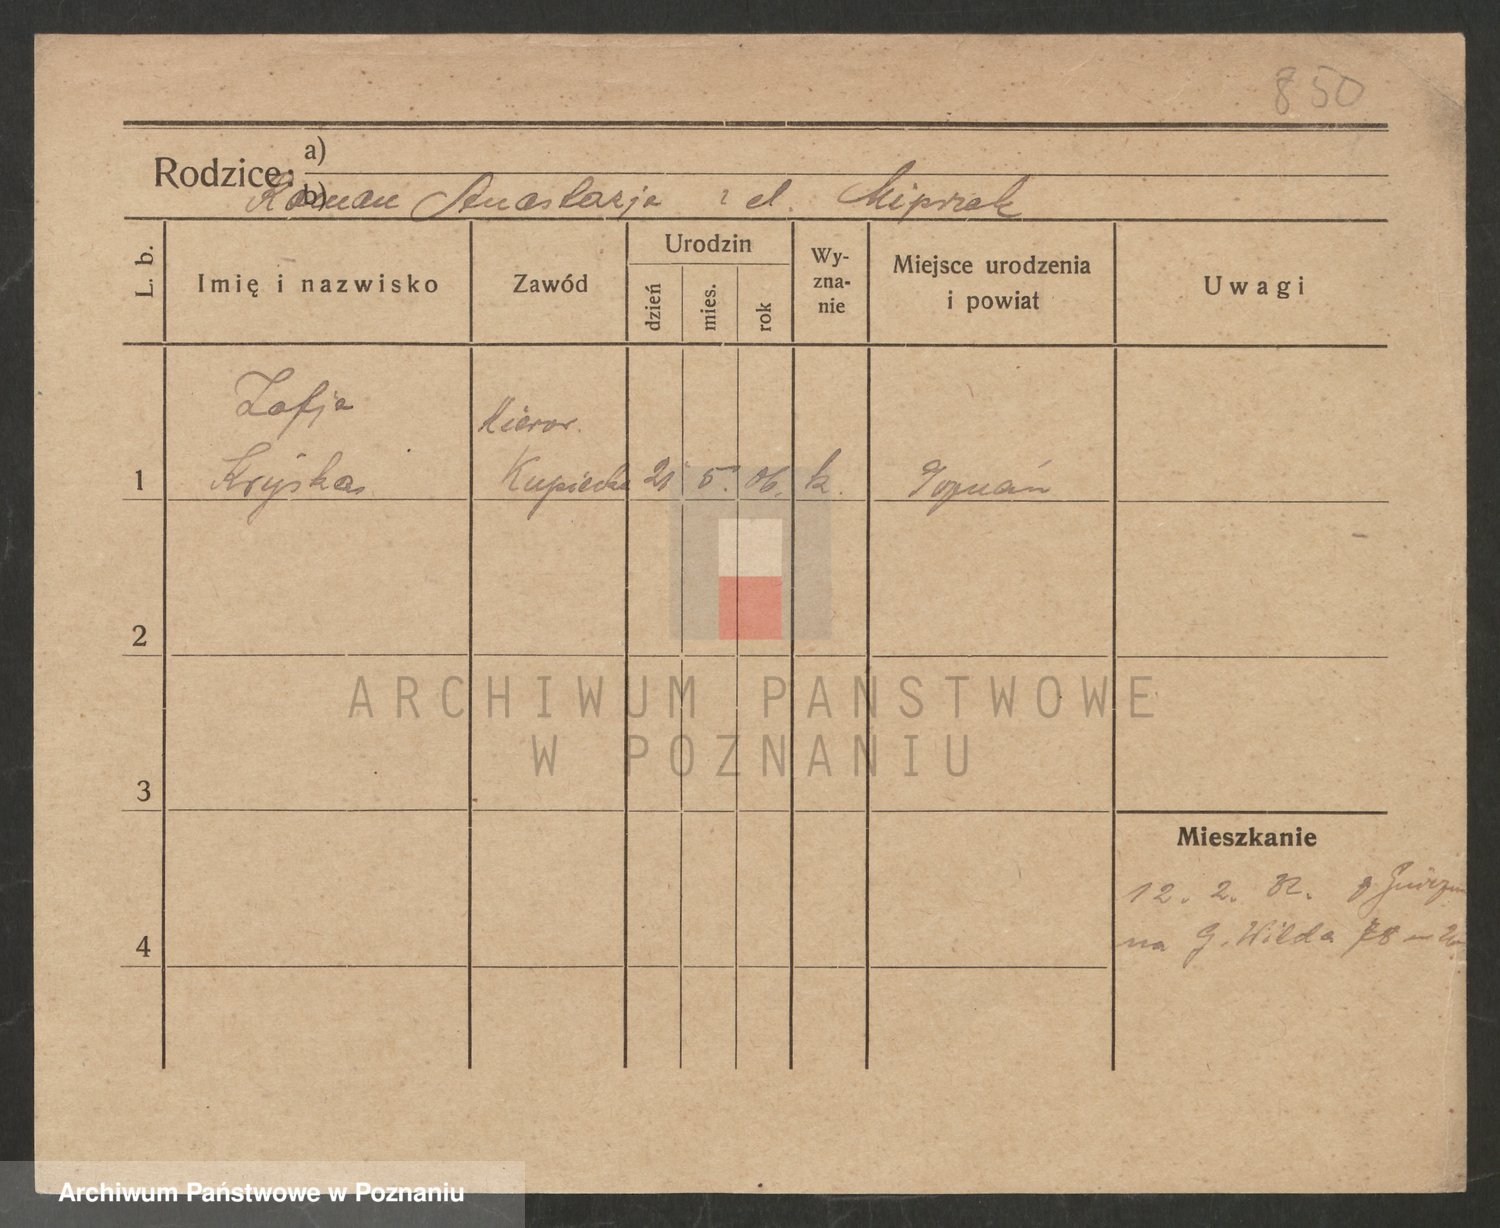 850
Rodzice: a)
b) Roman Anastazja z d.
L. b.
Imię i nazwisko
Zawód
Urodzin
dzień
mies.
rok
Wy-
zna-
nie
Miejsce urodzenia
i powiat
Uwagi
Zofja
Kierow.
1 Kryska Kupiecka 21 5. 06. k. Poznań
2
3
4
Mieszkanie
12. 2. 32.
na G. Wilda 78 m
ARCHIWUM PAŃSTWOWE
W POZNANIU
Archiwum Państwowe w Poznaniu